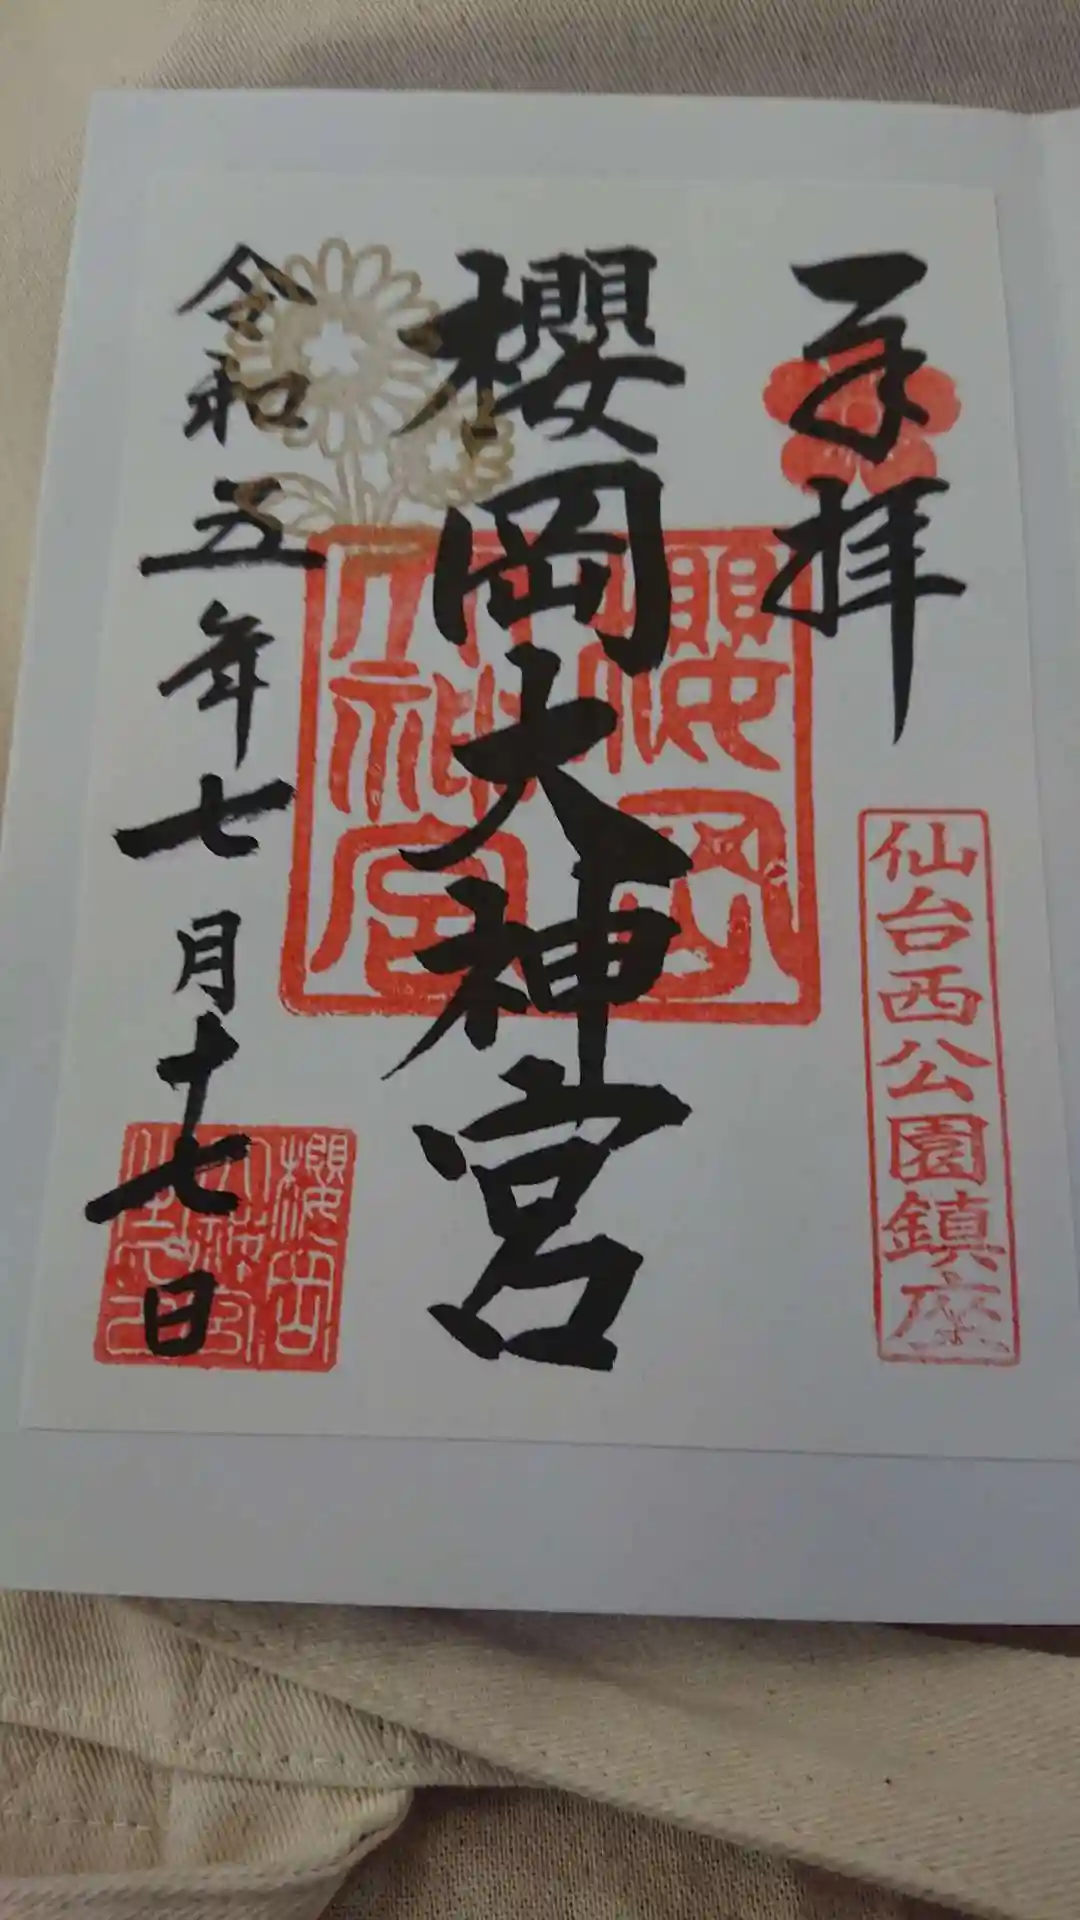 奉拝
仙台西公園鎮座
櫻岡大神宮
櫻岡
大神宮
令和五年七月十七日
櫻岡
大神宮